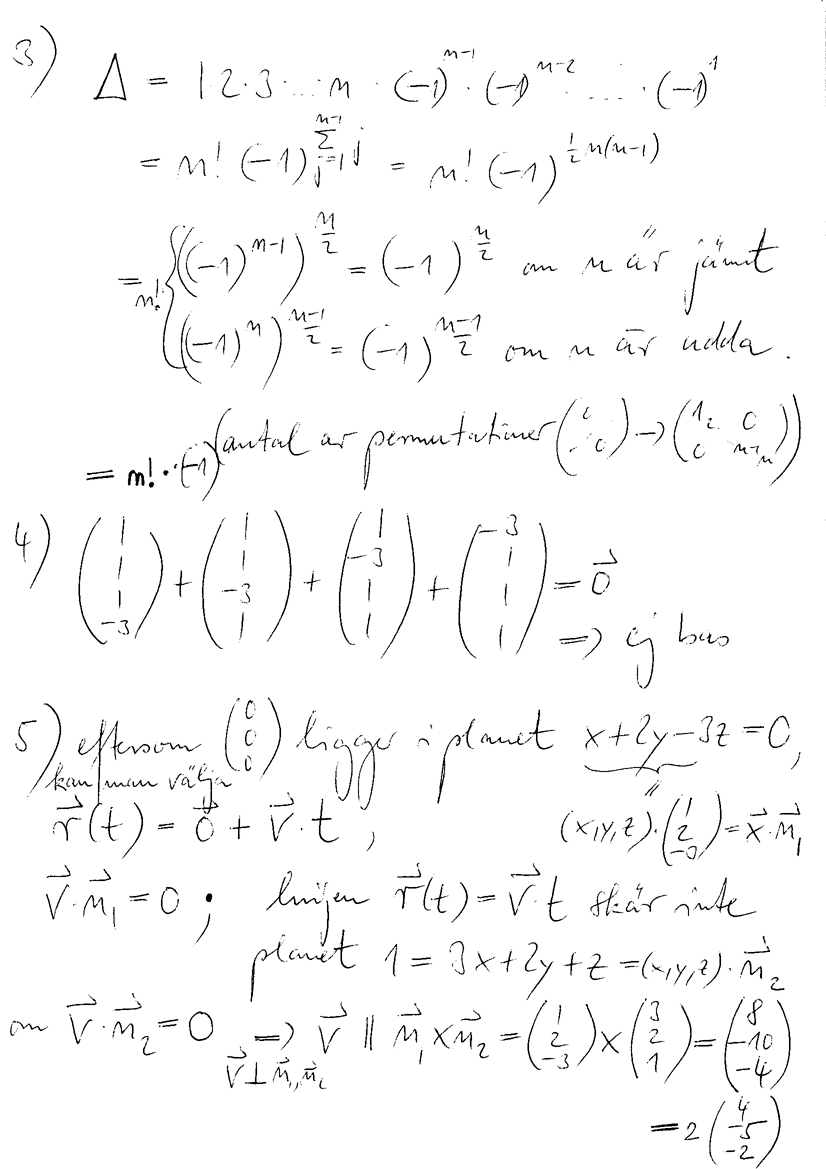 3) Δ = 1·2·3·...·n · (-1)^{n-1} · (-1)^{n-2} · ... · (-1)^1
= n! (-1)^{\sum_{j=1}^{n-1} j} = n! (-1)^{\frac{1}{2} n(n-1)}
= n! { ((-1)^{n-1})^{\frac{n}{2}} = (-1)^{\frac{n}{2}} om n är jämt
((-1)^n)^{\frac{n-1}{2}} = (-1)^{\frac{n-1}{2}} om n är udda.
= n! · (-1)^(antal av permutationer
4) (1 1 1 -3) + (1 1 -3 1) + (1 -3 1 1) + (-3 1 1 1) = \vec{0}
=> ej bas
5) eftersom (0 0 0) ligger i planet x+2y-3z=0,
kan man välja
\vec{r}(t) = \vec{0} + \vec{v}·t , (x,y,z)·(1 2 -3) = \vec{x}·\vec{n}_1
\vec{v}·\vec{n}_1 = 0 ; linjen \vec{r}(t) = \vec{v}·t skär inte
planet 1 = 3x+2y+z = (x,y,z)·\vec{n}_2
om \vec{v}·\vec{n}_2 = 0 => \vec{v} ∥ \vec{n}_1 × \vec{n}_2 = (1 2 -3) × (3 2 1) = (8 -10 -4)
\vec{v} ⊥ \vec{n}_1, \vec{n}_2
= 2 (4 -5 -2)